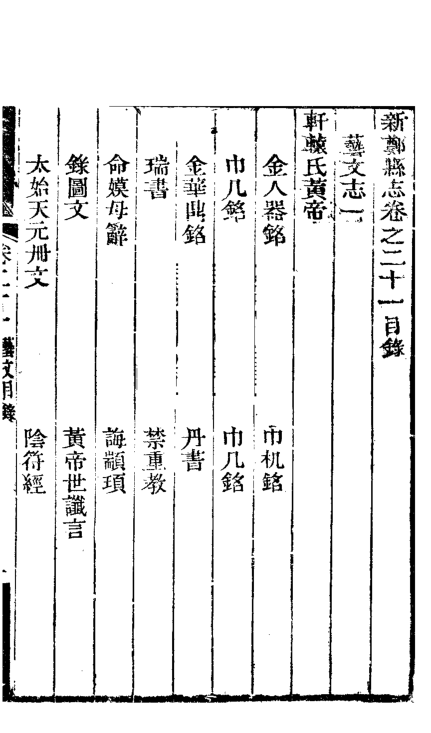 新鄭縣志卷之二十一目錄
藝文志一
軒轅氏黃帝
金人器銘　巾机銘
巾几銘　巾几銘
金華甽銘　丹書
瑞書　禁重教
命嫫母辭　誨顓頊
錄圖文　黃帝世讖言
太始天元冊文　陰符經
卷二十一　藝文目錄